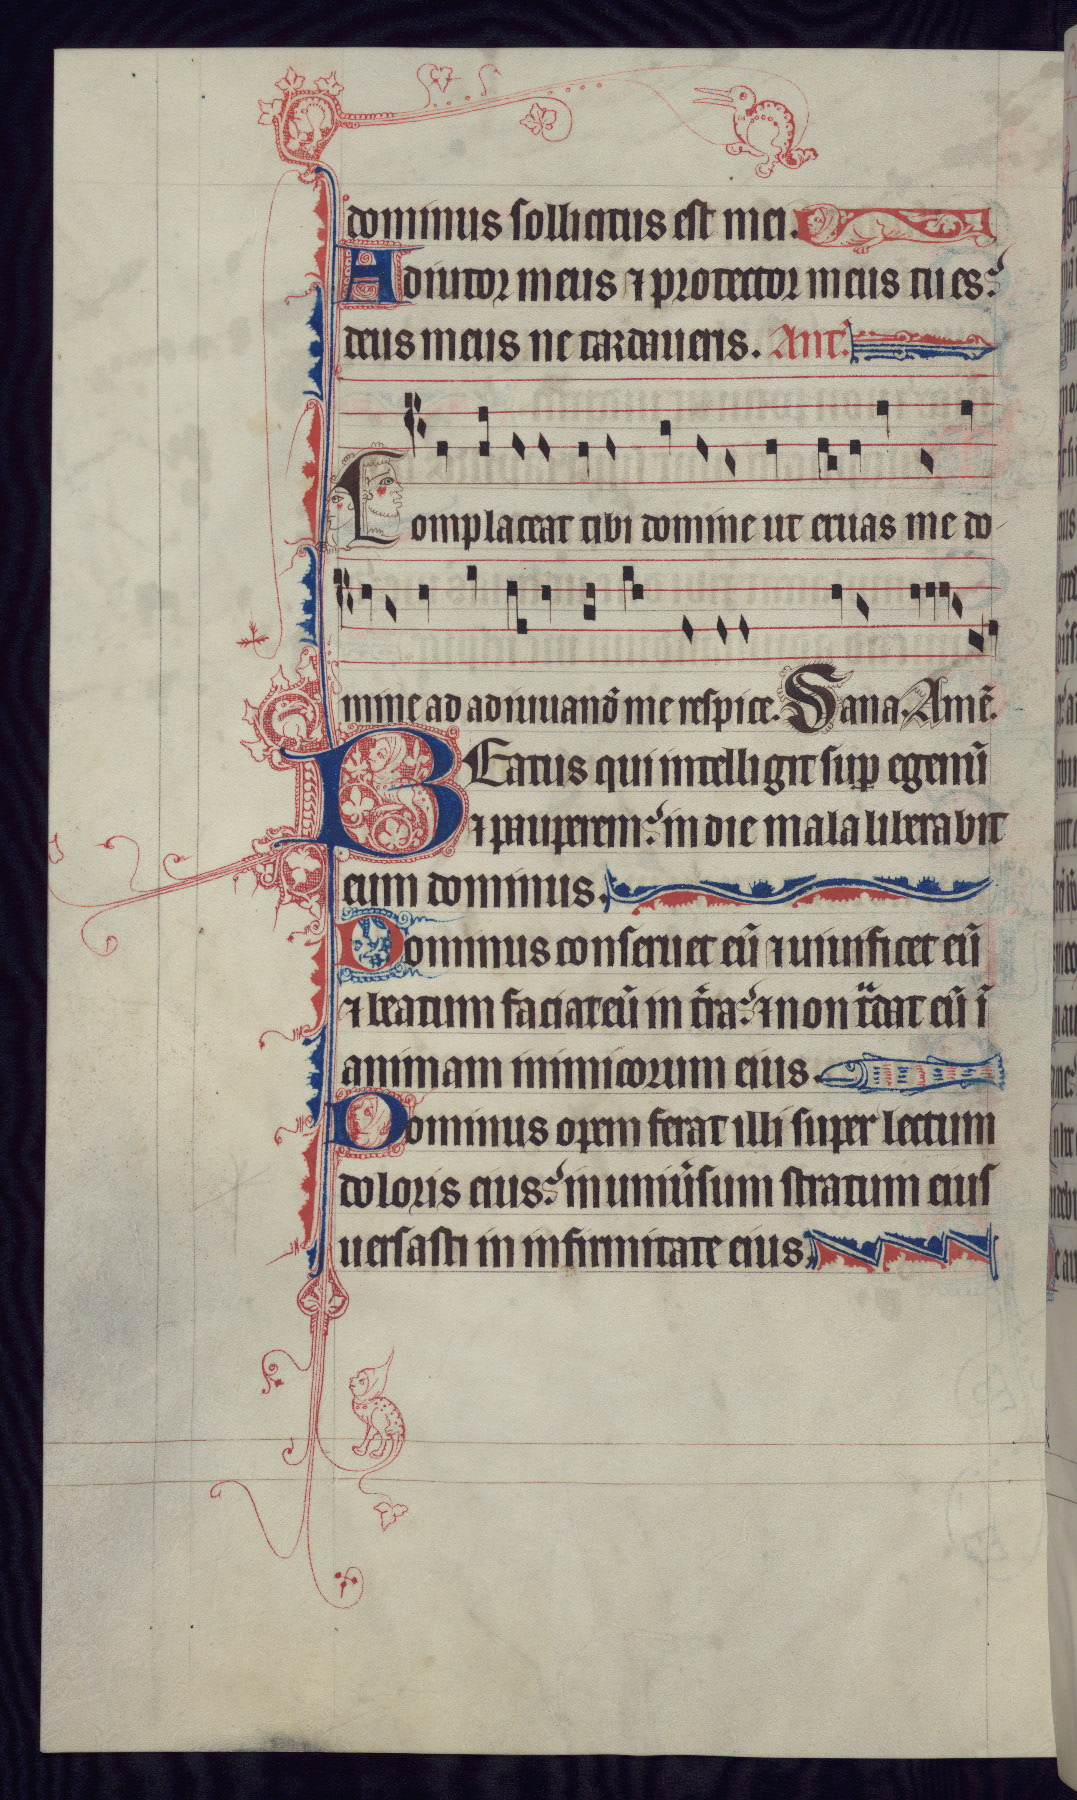 dominus sollicitus est mei.
Adiutor meus ⁊ protector meus tu es:
deus meus ne tardaueris. Ant.
Complaceat tibi domine ut eruas me do
mine ad adiuuandū me respice. Sana. Amē.
BEatus qui intelligit sup egenū
⁊ pauperem: in die mala liberabit
eum dominus.
Dominus conseruet eū ⁊ uiuificet eū
⁊ beatum faciat eū in t̄ra: ⁊ non t̄dat eū ī
animam inimicorum eius.
Dominus opem ferat illi super lectum
doloris eius: in uniūsum stratum eius
uersasti in infirmitate eius.